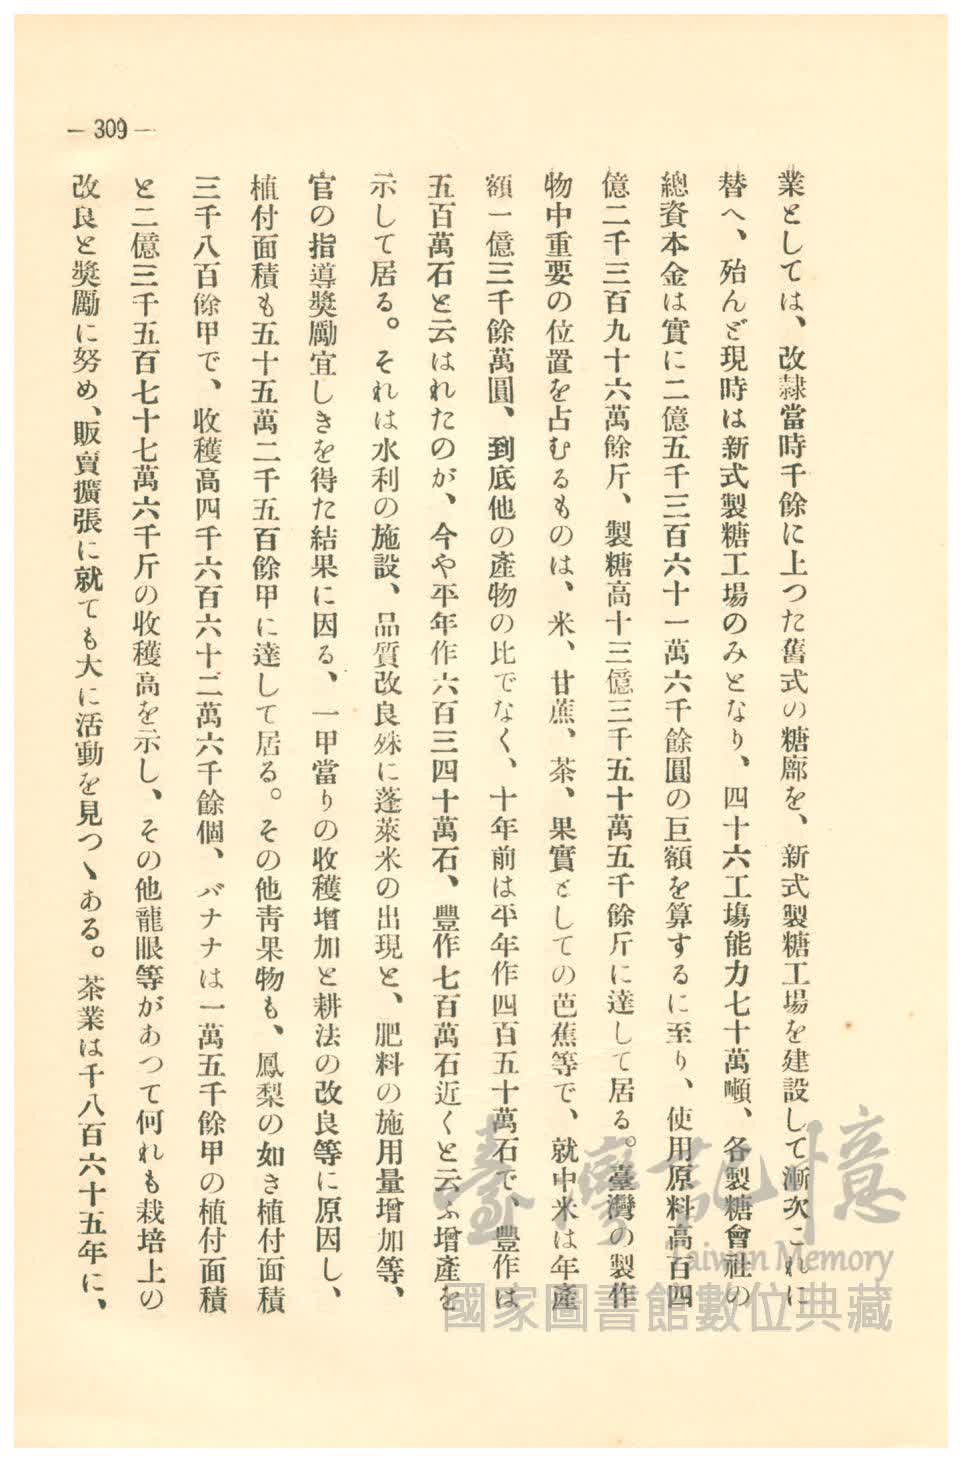 — 309 —
業としては、改隸當時千餘に上つた舊式の糖廍を、新式製糖工場を建設して漸次これに
替へ、殆んど現時は新式製糖工場のみとなり、四十六工塲能力七十萬噸、各製糖會社の
總資本金は實に二億五千三百六十一萬六千餘圓の巨額を算するに至り、使用原料高百四
億二千三百九十六萬餘斤、製糖高十三億三千五十萬五千餘斤に達して居る。臺灣の製作
物中重要の位置を占むるものは、米、甘蔗、茶、果實としての芭蕉等で、就中米は年產
額一億三千餘萬圓、到底他の產物の比でなく、十年前は平年作四百五十萬石で、豐作は
五百萬石と云はれたのが、今や平年作六百三四十萬石、豐作七百萬石近くと云ふ增產を
示して居る。それは水利の施設、品質改良殊に蓬萊米の出現と、肥料の施用量增加等、
官の指導獎勵宜しきを得た結果に因る、一甲當りの收穫增加と耕法の改良等に原因し、
植付面積も五十五萬二千五百餘甲に達して居る。その他靑果物も、鳳梨の如き植付面積
三千八百餘甲で、收穫高四千六百六十二萬六千餘個、バナナは一萬五千餘甲の植付面積
と二億三千五百七十七萬六千斤の收穫高を示し、その他龍眼等があつて何れも栽培上の
改良と獎勵に努め、販賣擴張に就ても大に活動を見つゝある。茶業は千八百六十五年に、
臺灣記憶
Taiwan Memory
國家圖書館數位典藏